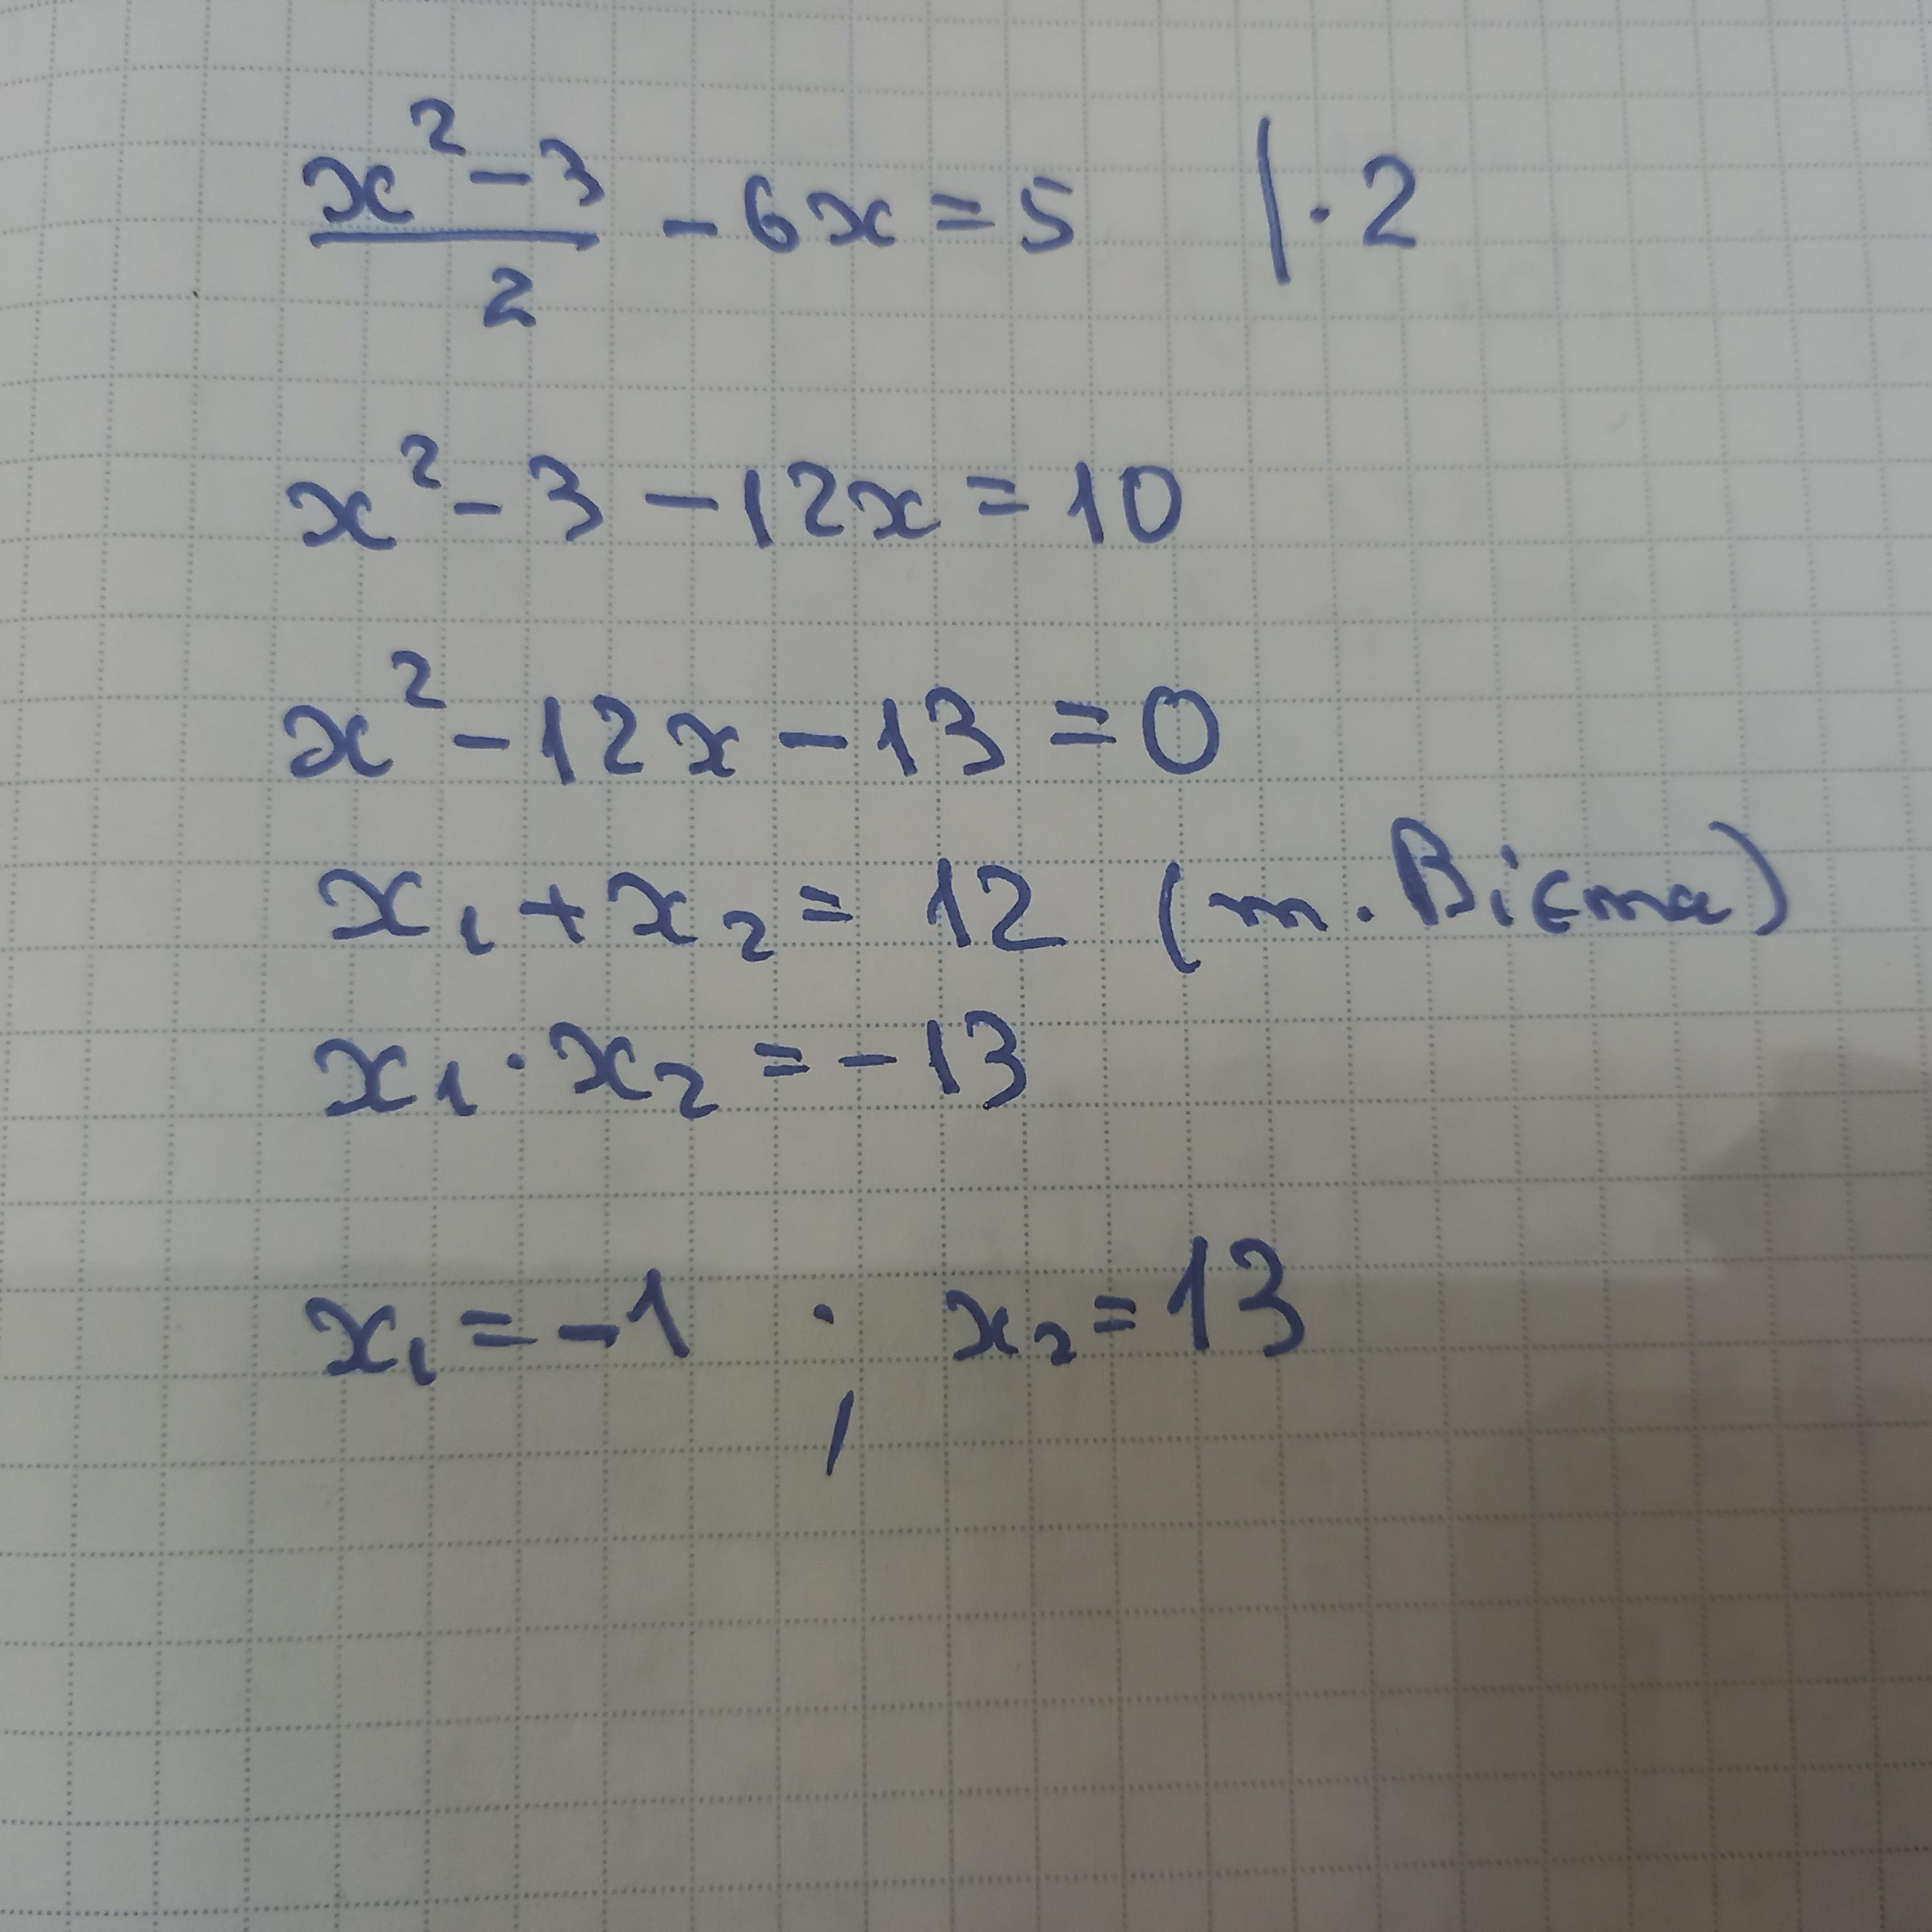 (x² - 3)/2 - 6x = 5 | · 2
x² - 3 - 12x = 10
x² - 12x - 13 = 0
x₁ + x₂ = 12 (т. Вієта)
x₁ · x₂ = -13
x₁ = -1 ; x₂ = 13